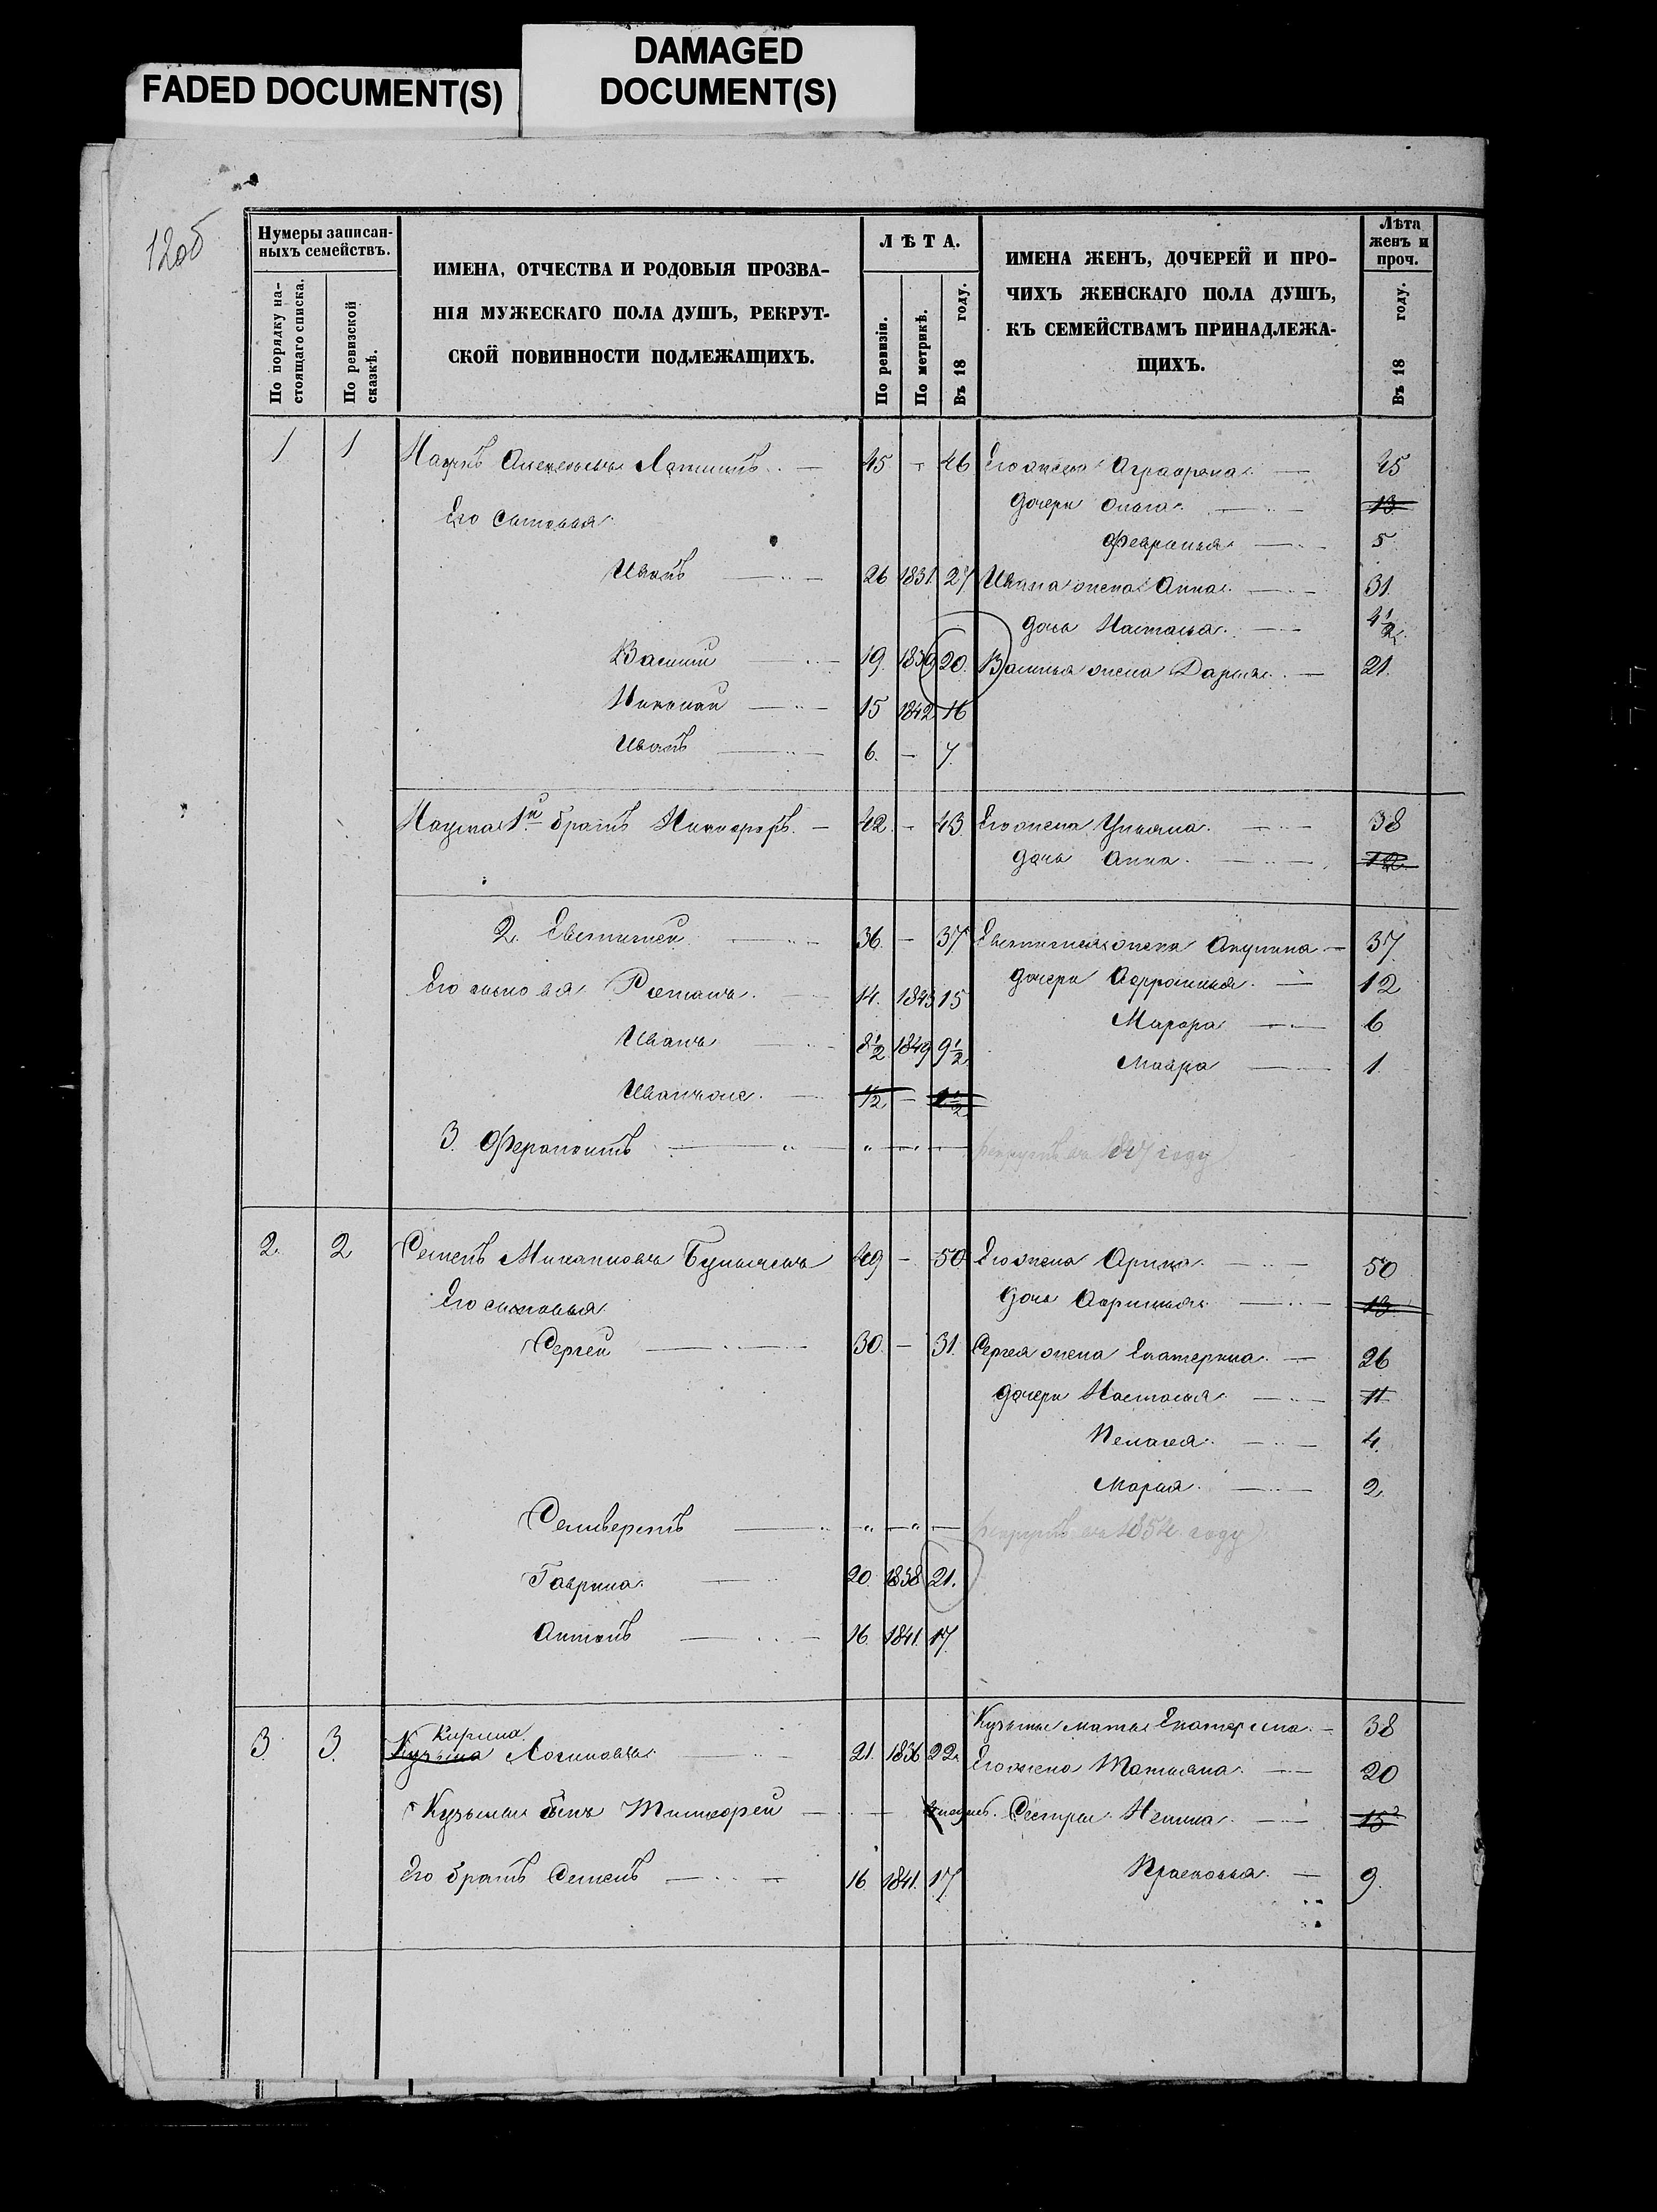 FADED DOCUMENT(S)
DAMAGED
DOCUMENT(S)
12об
Нумеры записан-
ныхъ семействъ.
По порядку на-
стоящаго списка.
По ревизской
сказкѣ.
ИМЕНА, ОТЧЕСТВА И РОДОВЫЯ ПРОЗВА-
НІЯ МУЖЕСКАГО ПОЛА ДУШЪ, РЕКРУТ-
СКОЙ ПОВИННОСТИ ПОДЛЕЖАЩИХЪ.
ЛѢТА.
По ревизіи.
По метрикѣ.
Въ 18 году.
ИМЕНА ЖЕНЪ, ДОЧЕРЕЙ И ПРО-
ЧИХЪ ЖЕНСКАГО ПОЛА ДУШЪ,
КЪ СЕМЕЙСТВАМЪ ПРИНАДЛЕЖА-
ЩИХЪ.
Лѣта
женъ и
проч.
Въ 18 году.
1 1 Наумъ 45 - 46 Его жена Аграфена 45
Его сыновья дочери Ольга 13
Февронья 5
Иванъ 26 1831 27 Ивана жена Анна 31
дочь Настасья 4 1/2
Василій 19 20 Василья жена Дарья 21
Николай 15 1842 16
Иванъ 6 - 7
Наума 1й братъ Никифоръ 42 - 43 Его жена Ульяна 38
дочь Анна 12
2. Евстигней 36 - 37 Евстигнея жена Акулина 37
Его сыновья Романъ 14 1843 15 дочери 12
Марфа 6
Иванъ 8 1/2 1849 9 1/2 Мавра 1
1/2 - 1 1/2
3. Ферапонтъ рекрутъ въ 1847 году
2 2 Семенъ 49 - 50 Его жена Арина 50
Его сыновья дочь 13
Сергей 30 - 31 Сергея жена Екатерина 26
дочери Настасья 11
Пелагея 4
Марья 2
Селиверстъ рекрутъ въ 1854 году
Гаврила 20 1838 21
Антонъ 16 1841 17
Кузьмы мать Екатерина 38
Кирила
3 3 Кузьма Логиновъ 21 1836 22 Его жена Татьяна 20
Кузьмы сынъ Тимофей Сестры 15
Его братъ Семенъ 16 1841 17 Прасковья 9